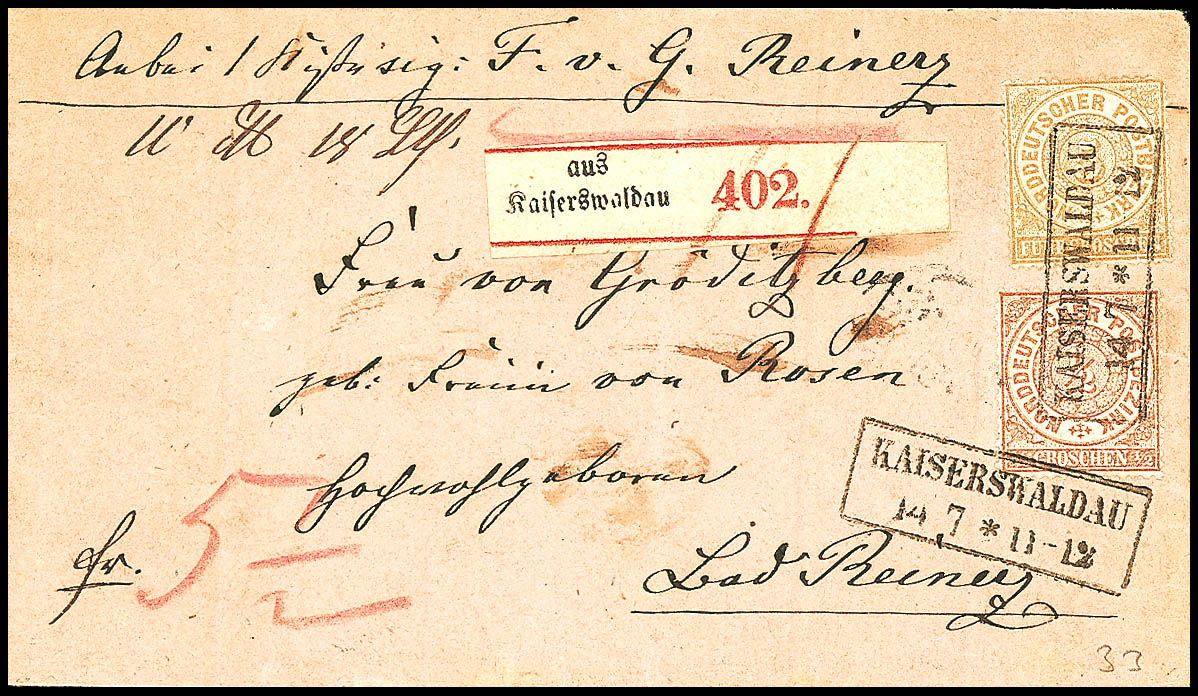 Anbei 1 Kiste sig: F. v. G. Reinerz
aus
Kaiserswaldau
402.
Frau von Gröditzberg.
geb: Freiin von Rosen
Hochwohlgeboren
fr.
5
Bad Reinerz
NORDDEUTSCHER POSTBEZIRK
FÜNF GROSCHEN
KAISERSWALDAU
14 7 * 11-12
NORDDEUTSCHER POSTBEZIRK
GROSCHEN 1/2
KAISERSWALDAU
14 7 * 11-12
33